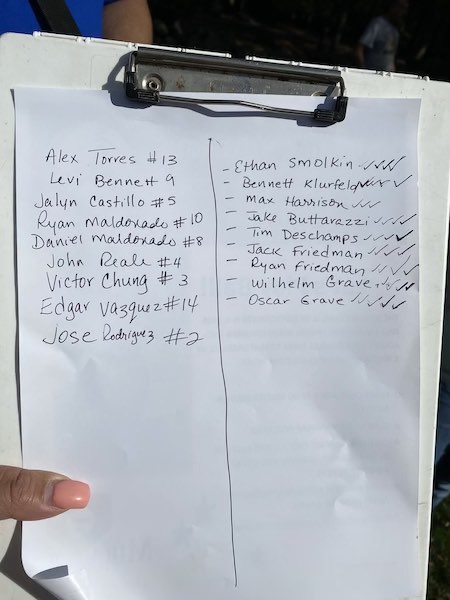 Alex Torres #13
Levi Bennett 9
Jalyn Castillo #5
Ryan Maldonado #10
Daniel Maldonado #8
John Reale #4
Victor Chung #3
Edgar Vazquez #14
Jose Rodriguez #2
- Ethan Smolkin ✓✓✓✓
- Bennett Klurfeld ✓✓✓ ✓
- Max Harrison ✓✓✓
- Jake Buttarazzi ✓✓✓✓
- Tim Deschamps ✓✓✓✓
- Jack Friedman ✓✓✓✓
- Ryan Friedman ✓✓✓✓
- Wilhelm Grave ✓✓✓✓
- Oscar Grave ✓✓✓✓